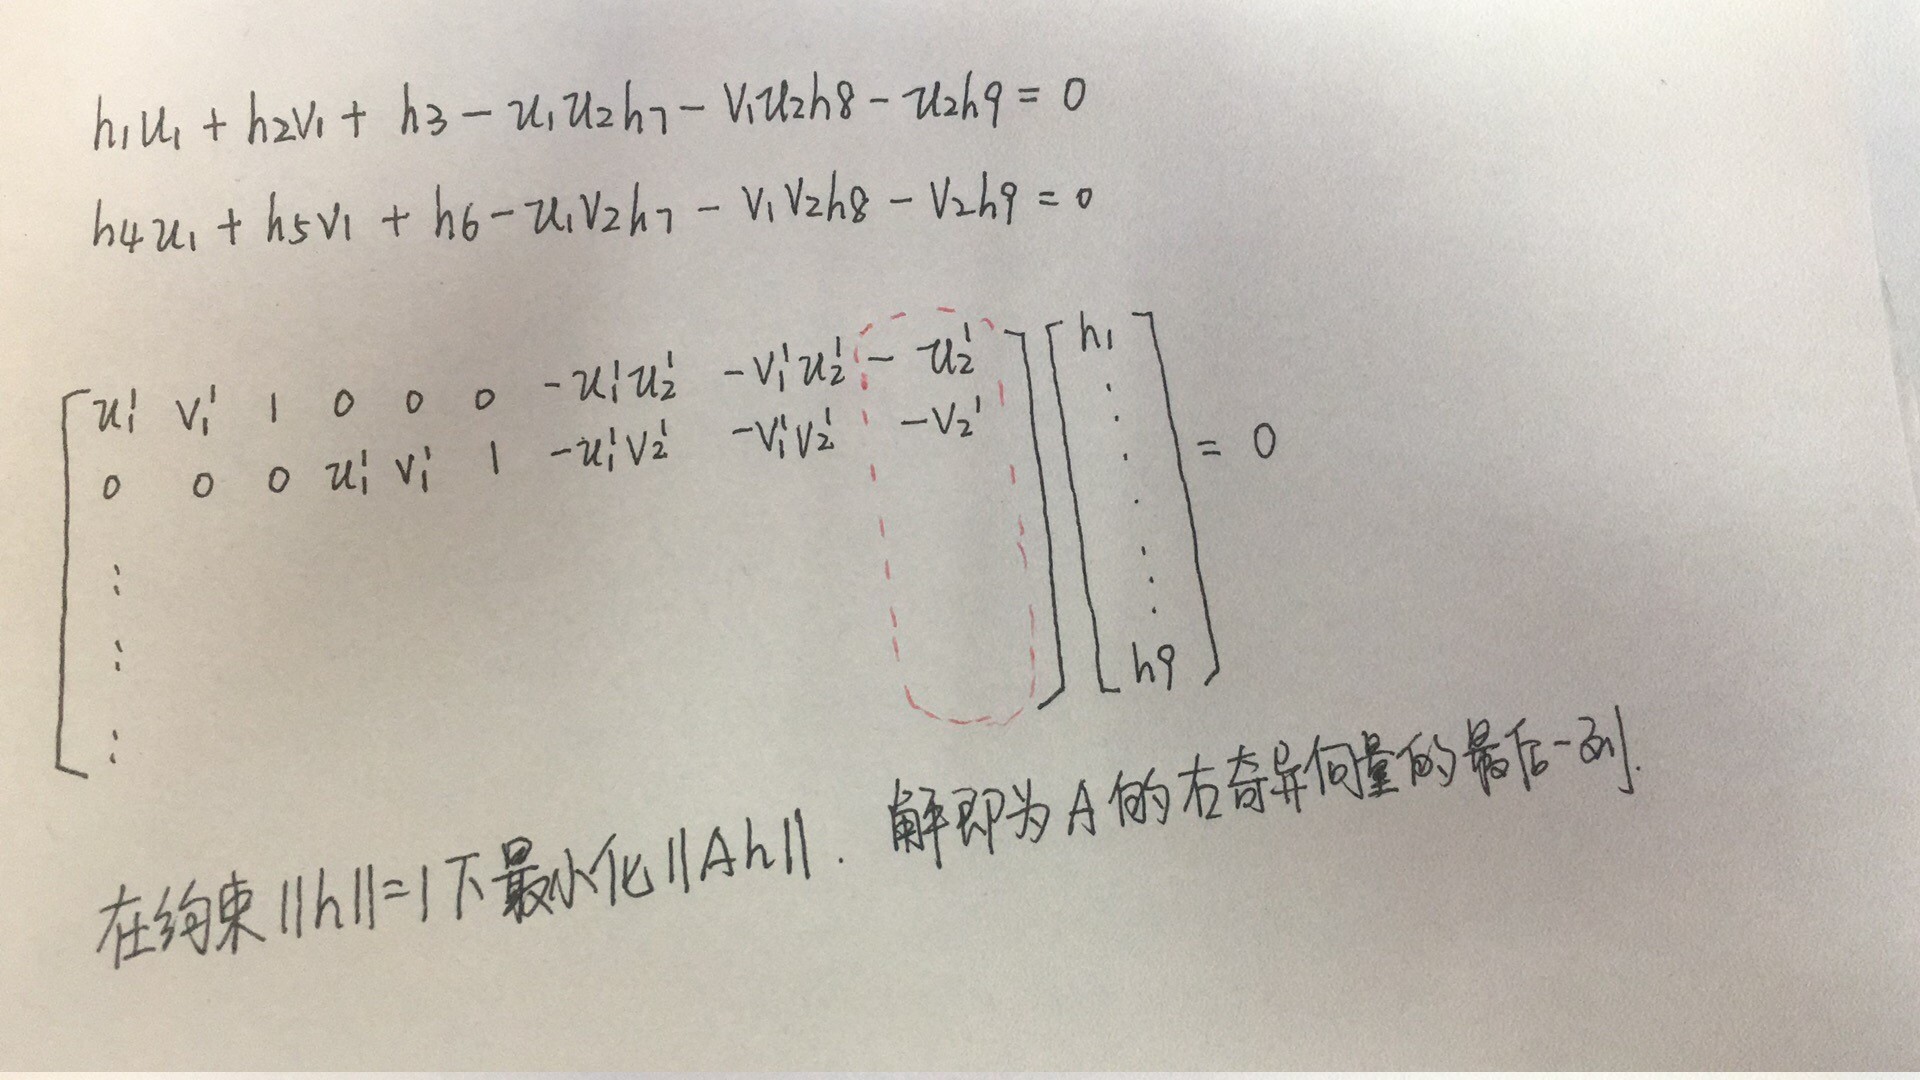 h₁u₁ + h₂v₁ + h3 - u₁u₂h₇ - v₁u₂h8 - u₂h9 = 0
h4u₁ + h5v₁ + h6 - u₁v₂h₇ - v₁v₂h8 - v₂h9 = 0
u₁¹ v₁¹ 1 0 0 0 -u₁¹u₂¹ -v₁¹u₂¹ -u₂¹ h₁
0 0 0 u₁¹ v₁¹ 1 -u₁¹v₂¹ -v₁¹v₂¹ -v₂¹ = 0
h9
在约束||h||=1下最小化||Ah||. 解即为A的右奇异向量的最后一列.